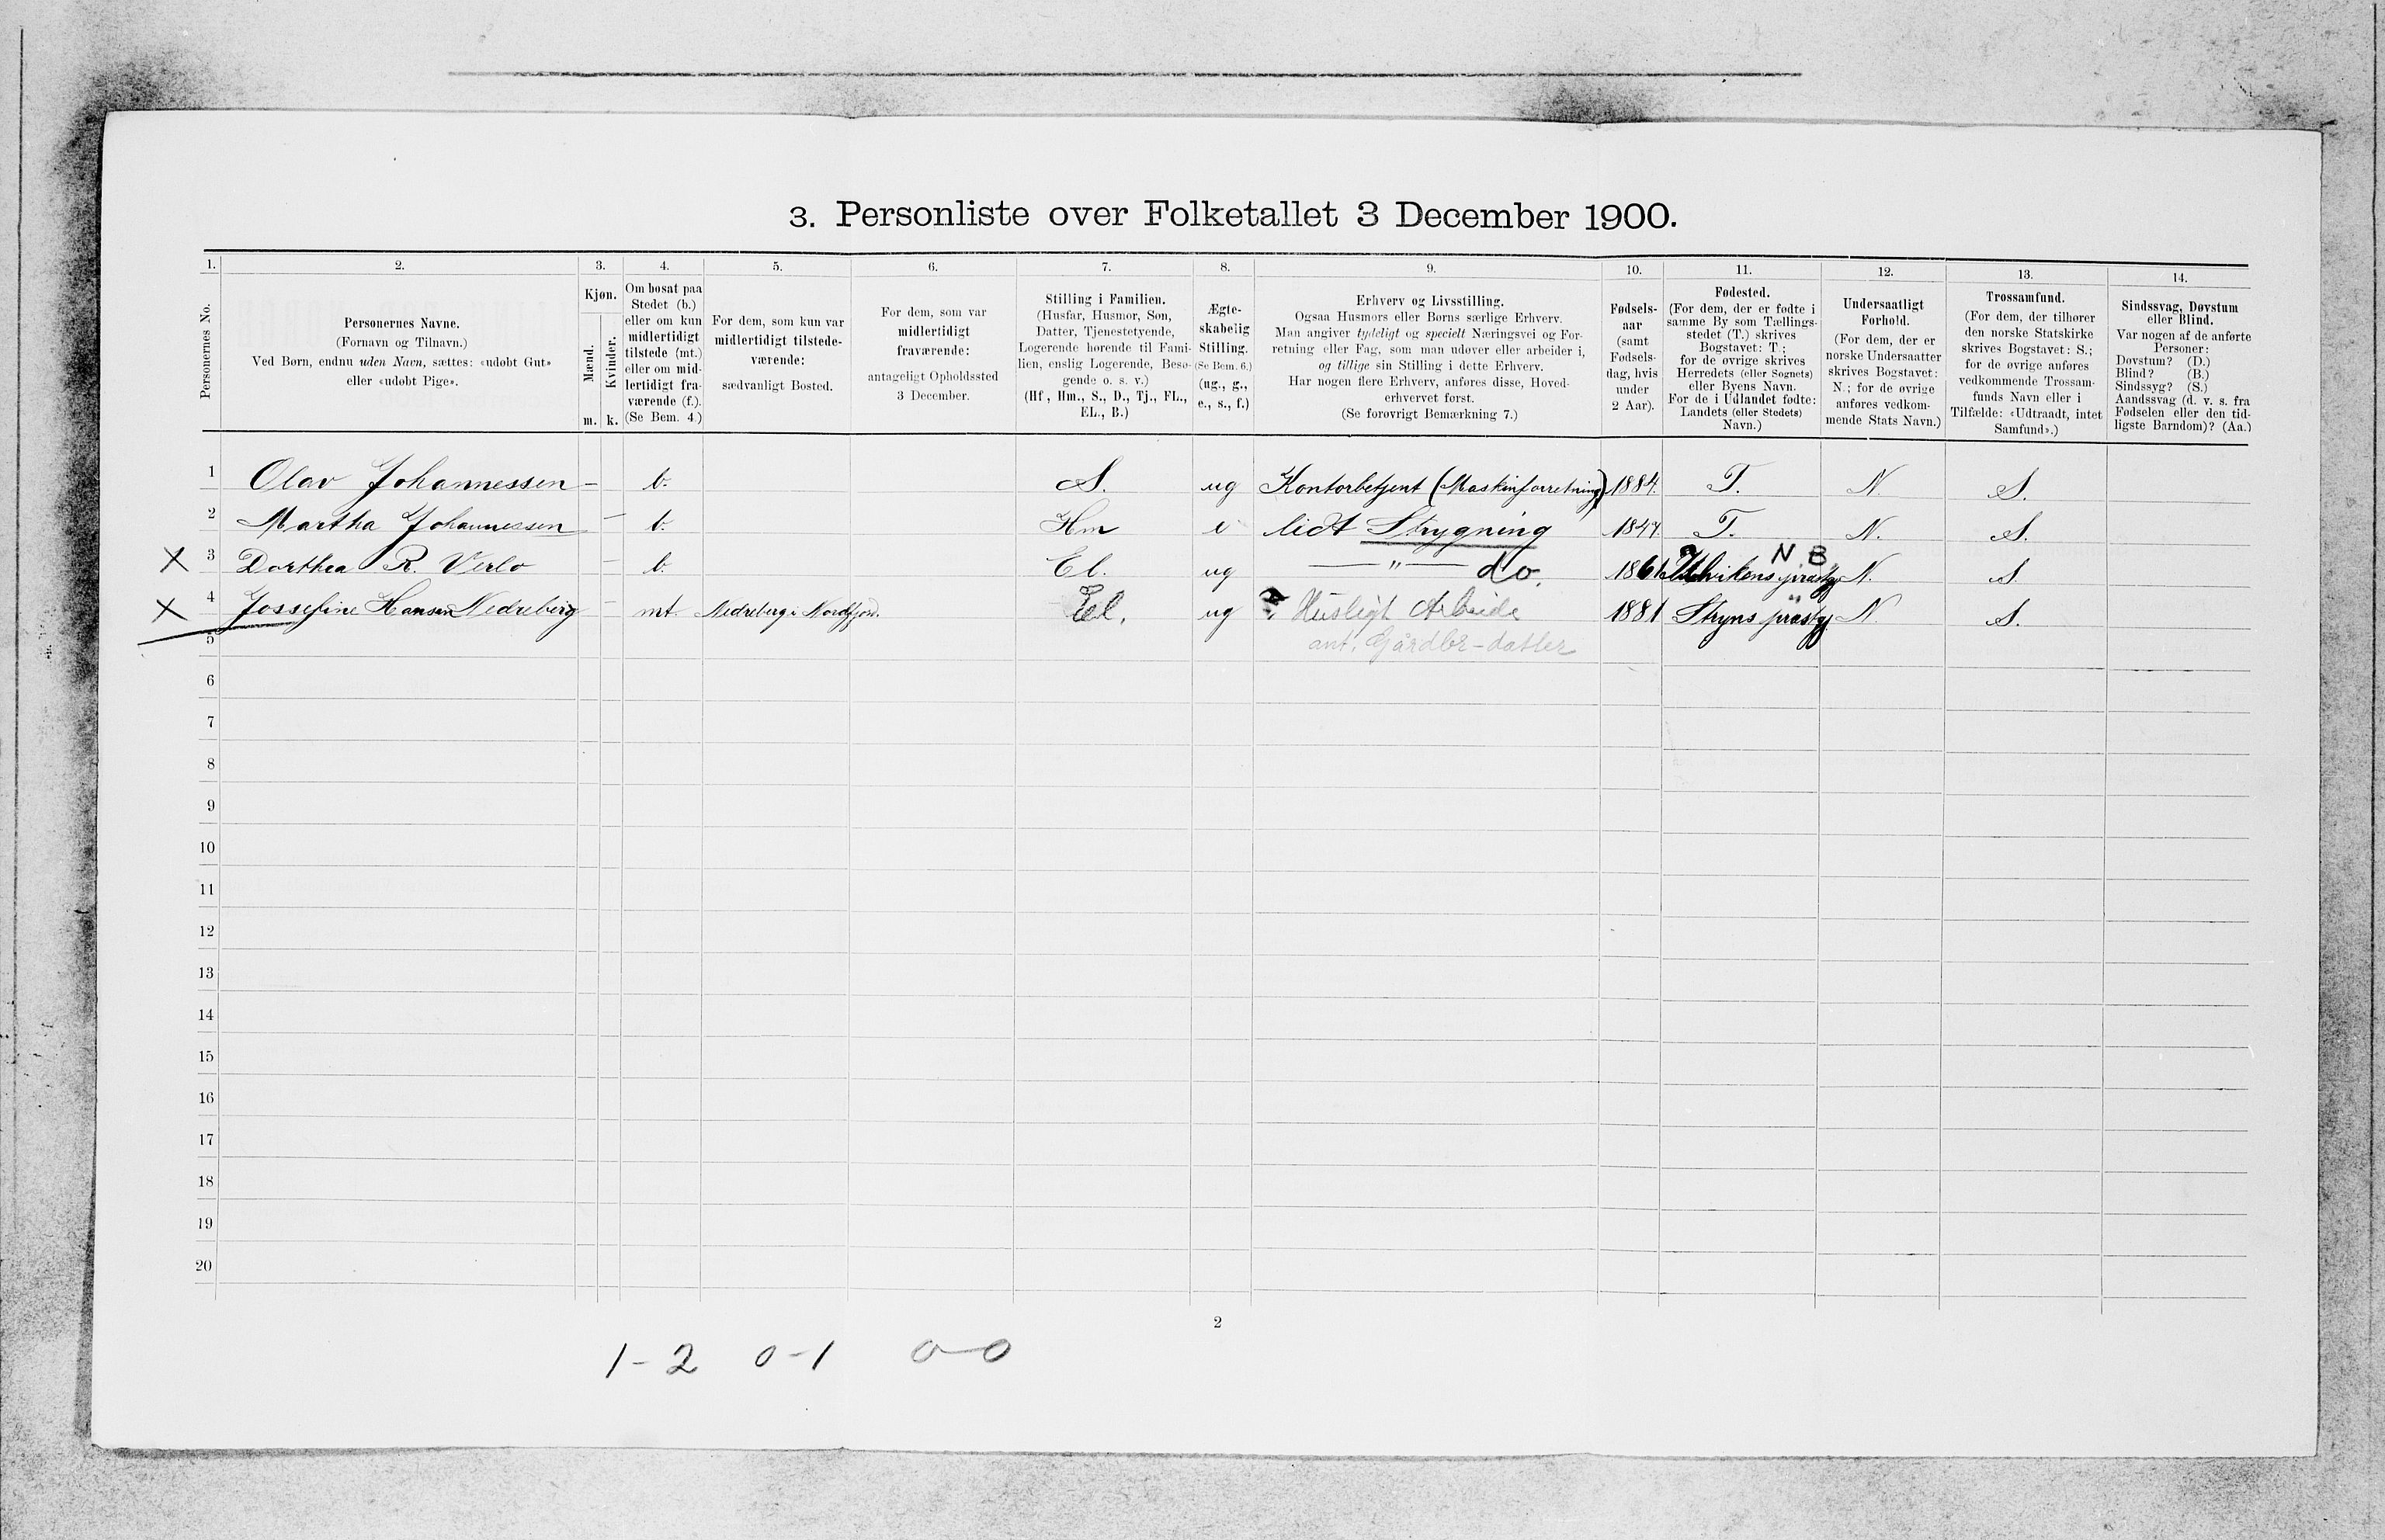 3. Personliste over Folketallet 3 December 1900.
1. 2. 3. 4. 5. 6. 7. 8. 9. 10. 11. 12. 13. 14.
Personernes No.
Personernes Navne.
(Fornavn og Tilnavn.)
Ved Børn, endnu uden Navn, sættes: «udøbt Gut»
eller «udøbt Pige».
Kjøn.
Mænd.
Kvinder.
m. k.
Om bosat paa
Stedet (b.)
eller om kun
midlertidigt
tilstede (mt.)
eller om mid-
lertidigt fra-
værende (f.).
(Se Bem. 4.)
For dem, som kun var
midlertidigt tilstede-
værende:
sædvanligt Bosted.
For dem, som var
midlertidigt
fraværende:
antageligt Opholdssted
3 December.
Stilling i Familien.
(Husfar, Husmor, Søn,
Datter, Tjenestetyende,
Logerende hørende til Fami-
lien, enslig Logerende, Besø-
gende o. s. v.)
(Hf., Hm., S., D., Tj., FL.,
EL., B.)
Ægte-
skabelig
Stilling.
(Se Bem. 6.)
(ug., g.,
e., s., f.)
Erhverv og Livsstilling.
Ogsaa Husmors eller Børns særlige Erhverv.
Man angiver tydeligt og specielt Næringsvei og For-
retning eller Fag, som man udøver eller arbeider i,
og tillige sin Stilling i dette Erhverv.
Har nogen flere Erhverv, anføres disse, Hoved-
erhvervet først.
(Se forøvrigt Bemærkning 7.)
Fødsels-
aar
(samt
Fødsels-
dag, hvis
under
2 Aar).
Fødested.
(For dem, der er fødte i
samme By som Tællings-
stedet (T.) skrives
Bogstavet: T.;
for de øvrige skrives
Herredets (eller Sognets)
eller Byens Navn.
For de i Udlandet fødte:
Landets (eller Stedets)
Navn.)
Undersaatligt
Forhold.
(For dem, der er
norske Undersaatter
skrives Bogstavet:
N.; for de øvrige
anføres vedkom-
mende Stats Navn.)
Trossamfund.
(For dem, der tilhører
den norske Statskirke
skrives Bogstavet: S.;
for de øvrige anføres
vedkommende Trossam-
funds Navn eller i
Tilfælde: «Udtraadt, intet
Samfund».)
Sindssvag, Døvstum
eller Blind.
Var nogen af de anførte
Personer:
Døvstum? (D.)
Blind? (B.)
Sindssyg? (S.)
Aandssvag (d. v. s. fra
Fødselen eller den tid-
ligste Barndom)? (Aa.)
1 Olav Johannessen – b. S. ug Kontorbetjent (Maskinforretning) 1884. T. N. S.
2 Martha Johannessen – b. Hm e lidt Strygning 1847. T. N. S.
N B
X 3 Dorthea R. Verlo – b. El. ug — " — do. 1861 N. S.
X 4 Jossefine Hansen Nedreberg – mt. Nedreberg i Nordfjord. El. ug Husligt Arbeide 1881 Stryns præstgj N. S.
5 ant. Gårdbr-datter
6
7
8
9
10
11
12
13
14
15
16
17
18
19
20
2
1-2 0-1 0-0